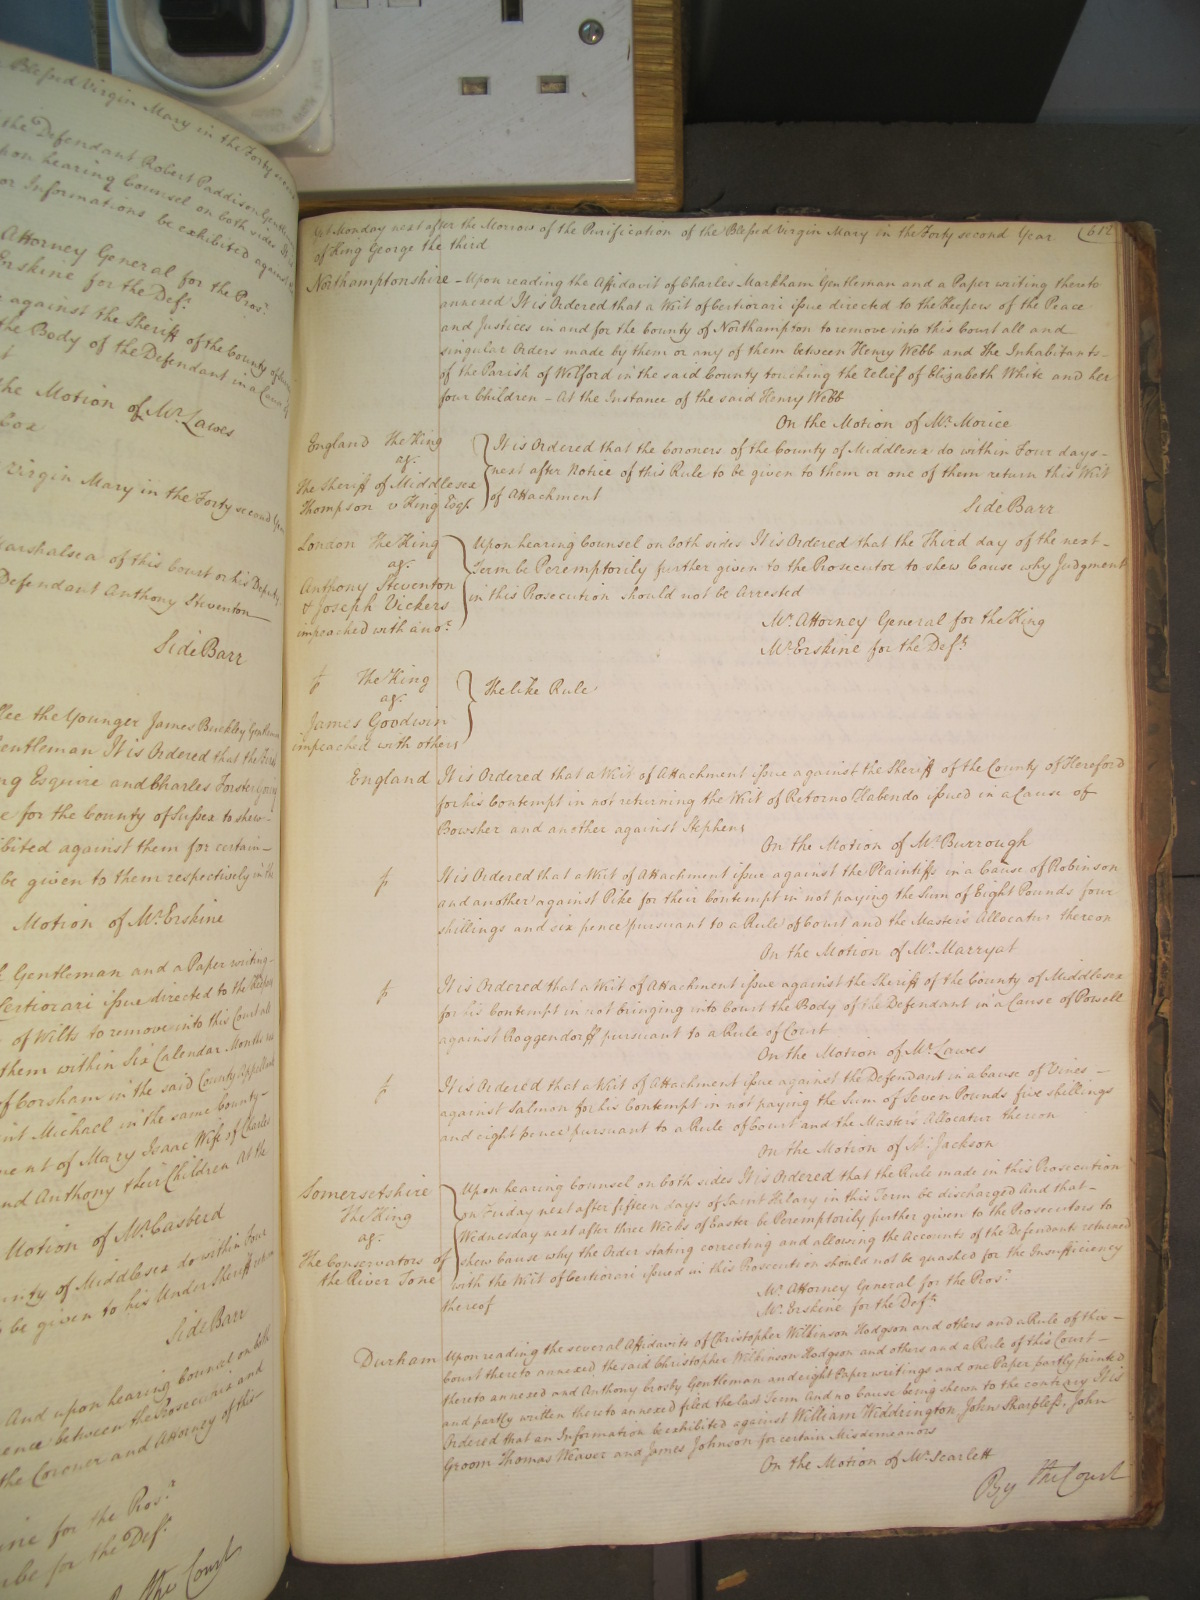 Blessed Virgin Mary in the Forty second
the Defendant Robert Paddison Gentleman
upon hearing Counsel on both sides It is
or Informations be exhibited against
Attorney General for the Pros.r
Erskine for the Def.t
against the Sheriff of the County of
the Body of the Defendant in a Cause of
the Motion of Mr. Lawes
Virgin Mary in the Forty second Year
Marshalsea of this Court or his Deputy
Defendant Anthony Steventon
Side Barr
lee the Younger James Buckley Gentleman
Gentleman It is Ordered that the
ng Esquire and Charles Forster Goring
for the County of Sussex to shew
bited against them for certain
be given to them respectively in the
Motion of Mr. Erskine
Gentleman and a Paper writing
Certiorari issue directed to the Keepers
of Wilts to remove into this Court all
them within Six Calendar Months
of Corsham in the said County Appellants
int Michael in the same County
ment of Mary Isaac Wife of Charles
and Anthony their Children At the
Motion of Mr. Casberd
unty of Middlesex do within four
be given to his Under Sheriff
Side Barr
And upon hearing Counsel on both
ence between the Prosecutrix and
the Coroner and Attorney of this
ine for the Pros.r
for the Def.t
By the Court
Yet Monday next after the Morrow of the Purification of the Blessed Virgin Mary in the Forty second Year (612
of King George the third
Northamptonshire - Upon reading the Affidavit of Charles Markham Gentleman and a Paper writing thereto
annexed It is Ordered that a Writ of Certiorari issue directed to the Keepers of the Peace
and Justices in and for the County of Northampton to remove into this Court all and
singular Orders made by them or any of them between Henry Webb and the Inhabitants
of the Parish of Welford in the said County touching the relief of Elizabeth White and her
four Children - At the Instance of the said Henry Webb
On the Motion of Mr. Morice
England The King
ag.t
The Sheriff of Middlesex
Thompson v King Esq.r
It is Ordered that the Coroners of the County of Middlesex do within Four days
next after Notice of this Rule to be given to them or one of them return this Writ
of Attachment
Side Barr
London The King
ag.t
Anthony Steventon
& Joseph Vickers
impeached with ano.r
Upon hearing Counsel on both sides It is Ordered that the Third day of the next
Term be Peremptorily further given to the Prosecutor to shew Cause why Judgment
in this Prosecution should not be Arrested
Mr. Attorney General for the King
Mr. Erskine for the Def.ts
The King
ag.t
James Goodwin
impeached with others
The like Rule
England It is Ordered that a Writ of Attachment issue against the Sheriff of the County of Hereford
for his Contempt in not returning the Writ of Retorno Habendo issued in a Cause of
Bowsher and another against Stephens
On the Motion of Mr. Burrough
It is Ordered that a Writ of Attachment issue against the Plaintiffs in a Cause of Robinson
and another against Pike for their Contempt in not paying the Sum of Eight Pounds four
shillings and six pence pursuant to a Rule of Court and the Master's Allocatur thereon
On the Motion of Mr. Marryat
It is Ordered that a Writ of Attachment issue against the Sheriff of the County of Middlesex
for his Contempt in not bringing into Court the Body of the Defendant in a Cause of Powell
against Roggendorff pursuant to a Rule of Court
On the Motion of Mr. Lawes
It is Ordered that a Writ of Attachment issue against the Defendant in a Cause of Vines
against Salmon for his Contempt in not paying the Sum of Seven Pounds five shillings
and eight pence pursuant to a Rule of Court and the Master's Allocatur thereon
On the Motion of Mr. Jackson
Somersetshire
The King
ag.t
The Conservators of
the River Tone
Upon hearing Counsel on both sides It is Ordered that the Rule made in this Prosecution
on Friday next after fifteen days of Saint Hilary in this Term be discharged And that
Wednesday next after three Weeks of Easter be Peremptorily further given to the Prosecutors to
shew Cause why the Order stating correcting and allowing the Accounts of the Defendants returned
with the Writ of Certiorari issued in this Prosecution should not be quashed for the Insufficiency
thereof
Mr. Attorney General for the Pros.r
Mr. Erskine for the Def.ts
Durham Upon reading the several Affidavits of Christopher Wilkinson Hodgson and others and a Rule of this
Court thereto annexed the said Christopher Wilkinson Hodgson and others and a Rule of this Court
thereto annexed and Anthony Crosby Gentleman and eight Paper writings and one Paper partly printed
and partly written thereto annexed filed the last Term And no Cause being shewn to the contrary It is
Ordered that an Information be exhibited against William Widdrington John Sharpless John
Groom Thomas Weaver and James Johnson for certain Misdemeanors
On the Motion of Mr. Scarlett
By the Court